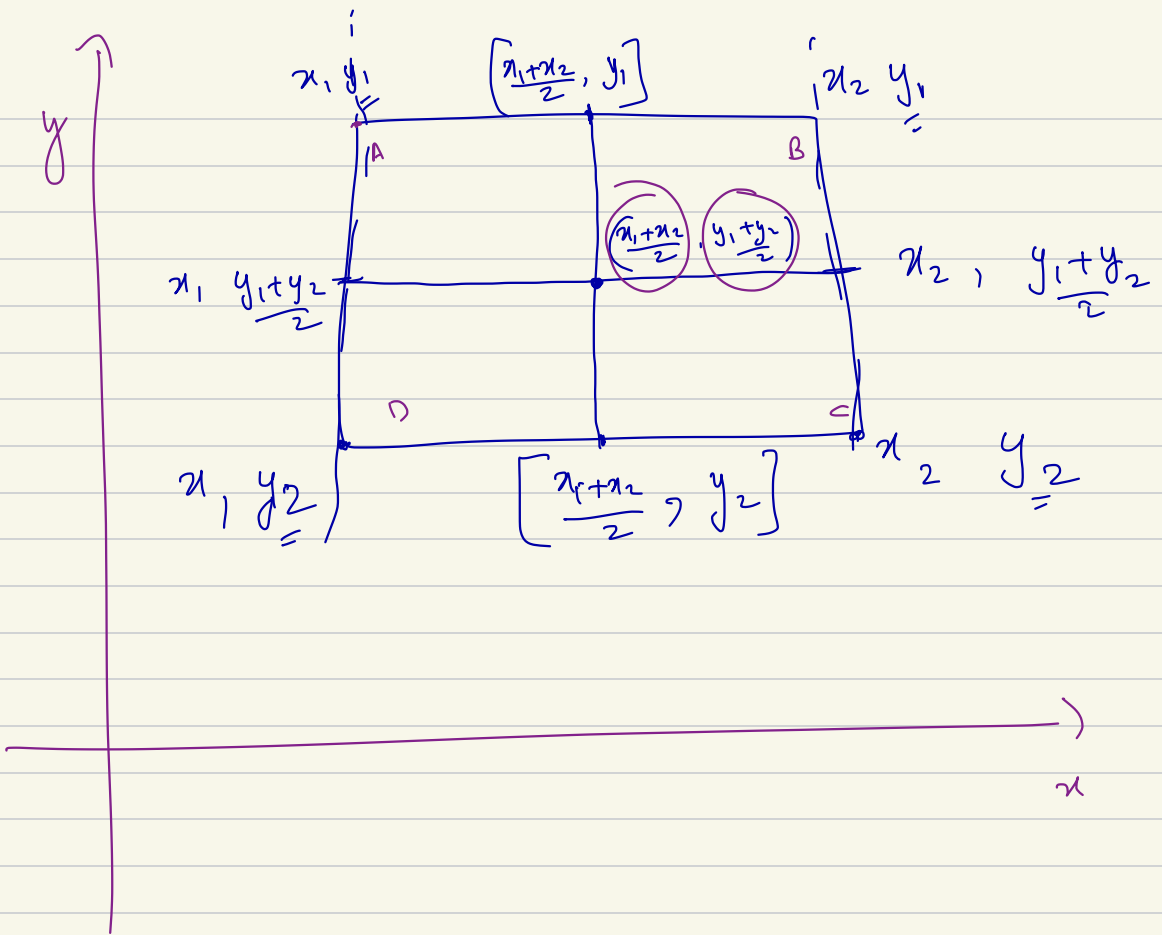 x₁ y₁ [(x₁+x₂)/2, y₁] , x₂ y₁
y
A B
((x₁+x₂)/2, (y₁+y₂)/2)
x₁ (y₁+y₂)/2 x₂, (y₁+y₂)/2
D C
x₁, y₂ [(x₁+x₂)/2, y₂] x₂ y₂
x